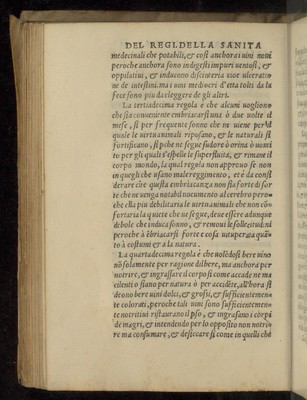 DEL REGI.DELLA SANITA
medecinali che potabili, & cosi anchora i uini noui
peroche anchora sono indigesti impuri uentosi, &
oppilatiui, & inducono discinteria cioe ulceratio
ne de intestini. ma i uini mediocri d'etta tolti da la
fece sono piu da eleggere de gli altri.
La tertiadecima regola è che alcuni uogliono
che sia conueniente embriacarsi una ò due uolte il
mese, si per frequente sonno che ne uiene per il
quale le uirtu animali riposano, & le naturali si
fortificano, si pche ne segue sudore ò orina ò uomi
to per gli quali s'espelle le superfluita, & rimane il
corpo mondo, la qual regola non approuo se non
in quegli che usano maleregimento, et è da consi
derare che questa embriacanza non sia forte di sor
te che ne uenga notabil nocumento al cerebro pero-
che ella piu debilitaria le uirtu animale che non cō
fortaria la quiete che ne segue, deue essere adunque
debole che induca sonno, & remoui le sollecitudini
peroche à ēbriacarsi forte e cosa uituperata quā-
to à costumi & a la natura.
La quartadecima regola è che nō si dè bere uino
nō solamente per ragione di bere, ma anchora per
notrire, & ingrassare il corpo si come accade ne ma
cilenti ò siano per natura ò per accidēte, all'hora si
deono bere uini dolci, & grossi, & sufficientemen-
te colorati, peroche tali uini sono sufficientemen-
te nocritiui ristaurano il pso, & ingrassano i corpi
de magri, & intendendo per lo opposito non notri-
re ma consumare, & desiccare si come in quelli che